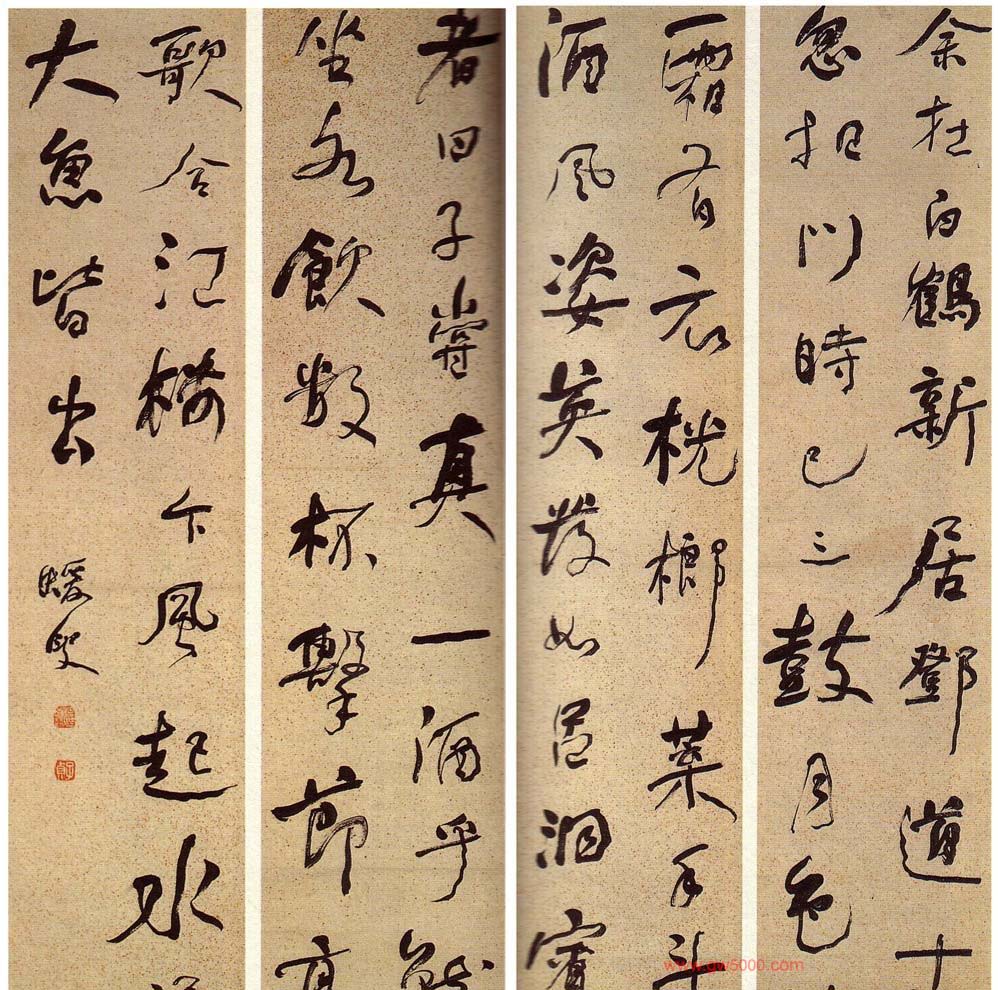 余在白鶴新居鄧道
忽扣門時已三鼓月色
霜有衣桄榔葉手斗
酒風姿英發如呂洞賓
者曰子嘗真一酒乎就
坐各飲數杯擊節高
歌合江樓下風起水
大魚皆出
蝯叟
www.gw5000.com